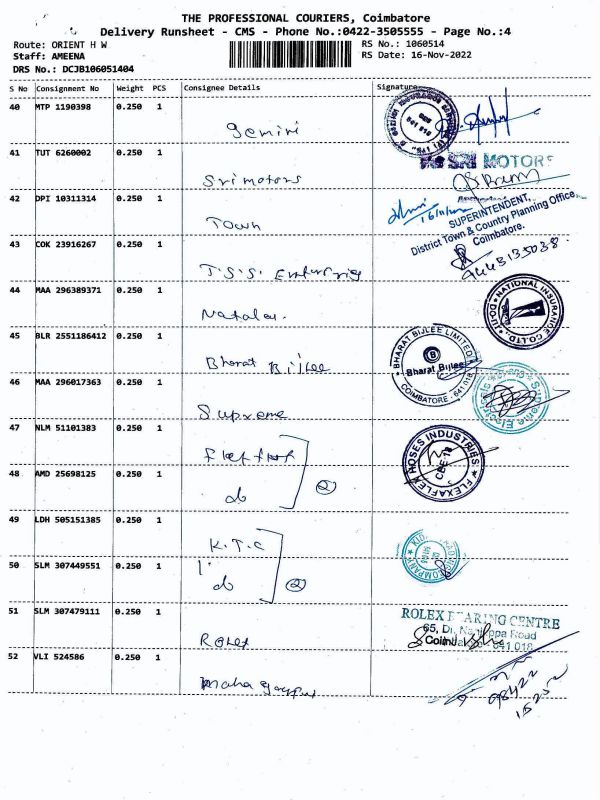 THE PROFESSIONAL COURIERS, Coimbatore
Delivery Runsheet - CMS - Phone No.:0422-3505555 - Page No.:4
Route: ORIENT H W
RS No.: 1060514
Staff: AMEENA
RS Date: 16-Nov-2022
DRS No.: DCJB106051404
S No Consignment No Weight PCS Consignee Details Signature
40 MTP 1190398 0.250 1 gemini
41 TUT 6260002 0.250 1 Sri motors
SRI MOTORS
42 DPI 10311314 0.250 1 Town
SUPERINTENDENT,
District Town & Country Planning Office
Coimbatore.
43 COK 23916267 0.250 1 T.S.S. Enterprises
9443135038
44 MAA 296389371 0.250 1
NATIONAL INSURANCE CO.LTD.
45 BLR 2551186412 0.250 1 Bharat Bijlee
BHARAT BIJLEE LIMITED
Bharat Bijlee
COIMBATORE - 641 018
46 MAA 296017363 0.250 1 Supreme
47 NLM 51101383 0.250 1
FLEXAFLEX HOSES INDUSTRIES
CBE-18
48 AMD 25698125 0.250 1 do 2
49 LDH 505151385 0.250 1 K.T.C
50 SLM 307449551 0.250 1 do 2
51 SLM 307479111 0.250 1 Rolex
ROLEX BEARING CENTRE
65, Dr. Nanjappa Road
Coimbatore - 641 018
52 VLI 524586 0.250 1 maha